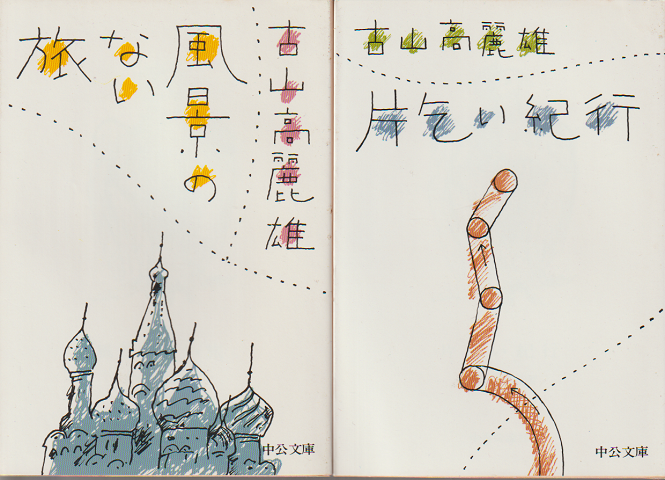 古山高麗雄
風景の
ない
旅
中公文庫
古山高麗雄
片乞い紀行
中公文庫